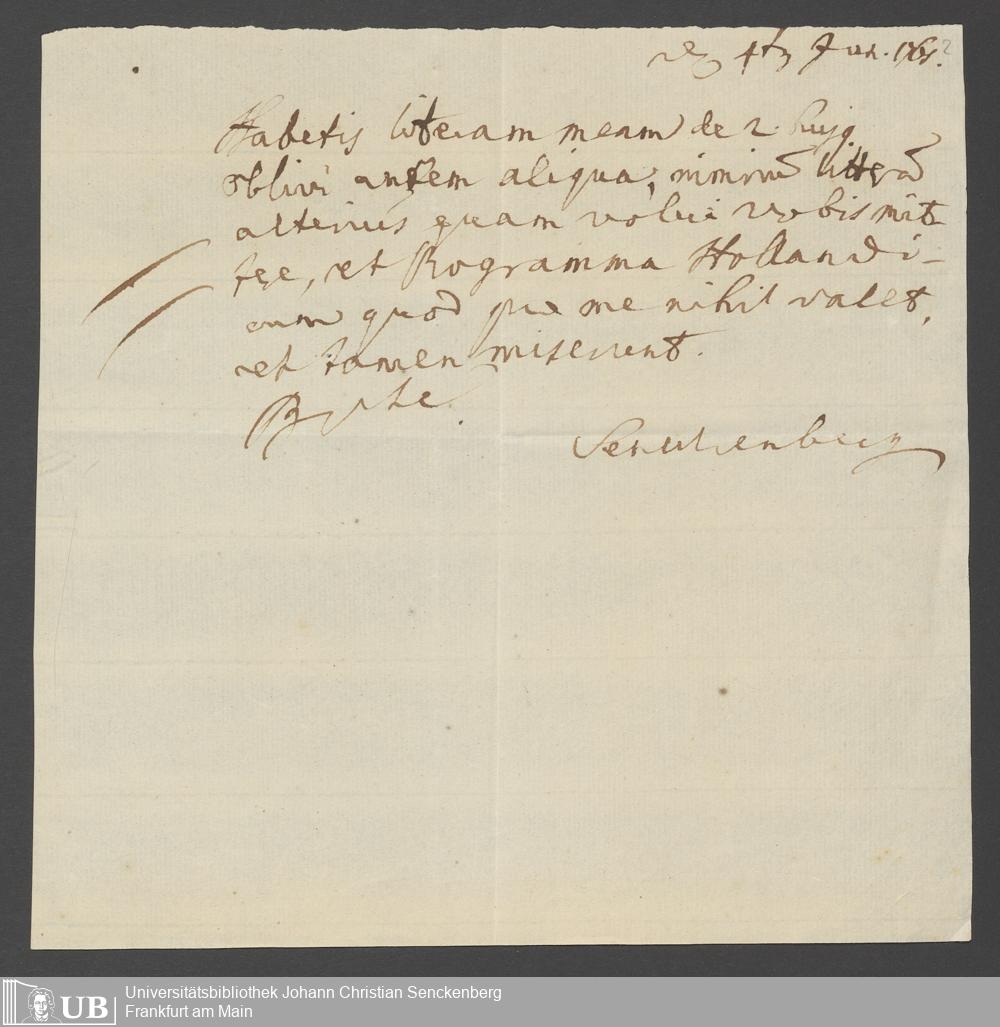 den 4ten Jun. 1761.
Habetis literam meam de 2 hujq
oblivi autem aliqua, nimirū litterā
alterius quam volui vobis mit
tere, et Programma Hollandi-
cum quod pro me nihil valet,
et tamen miserunt.
Senckenberg
UB
Universitätsbibliothek Johann Christian Senckenberg
Frankfurt am Main